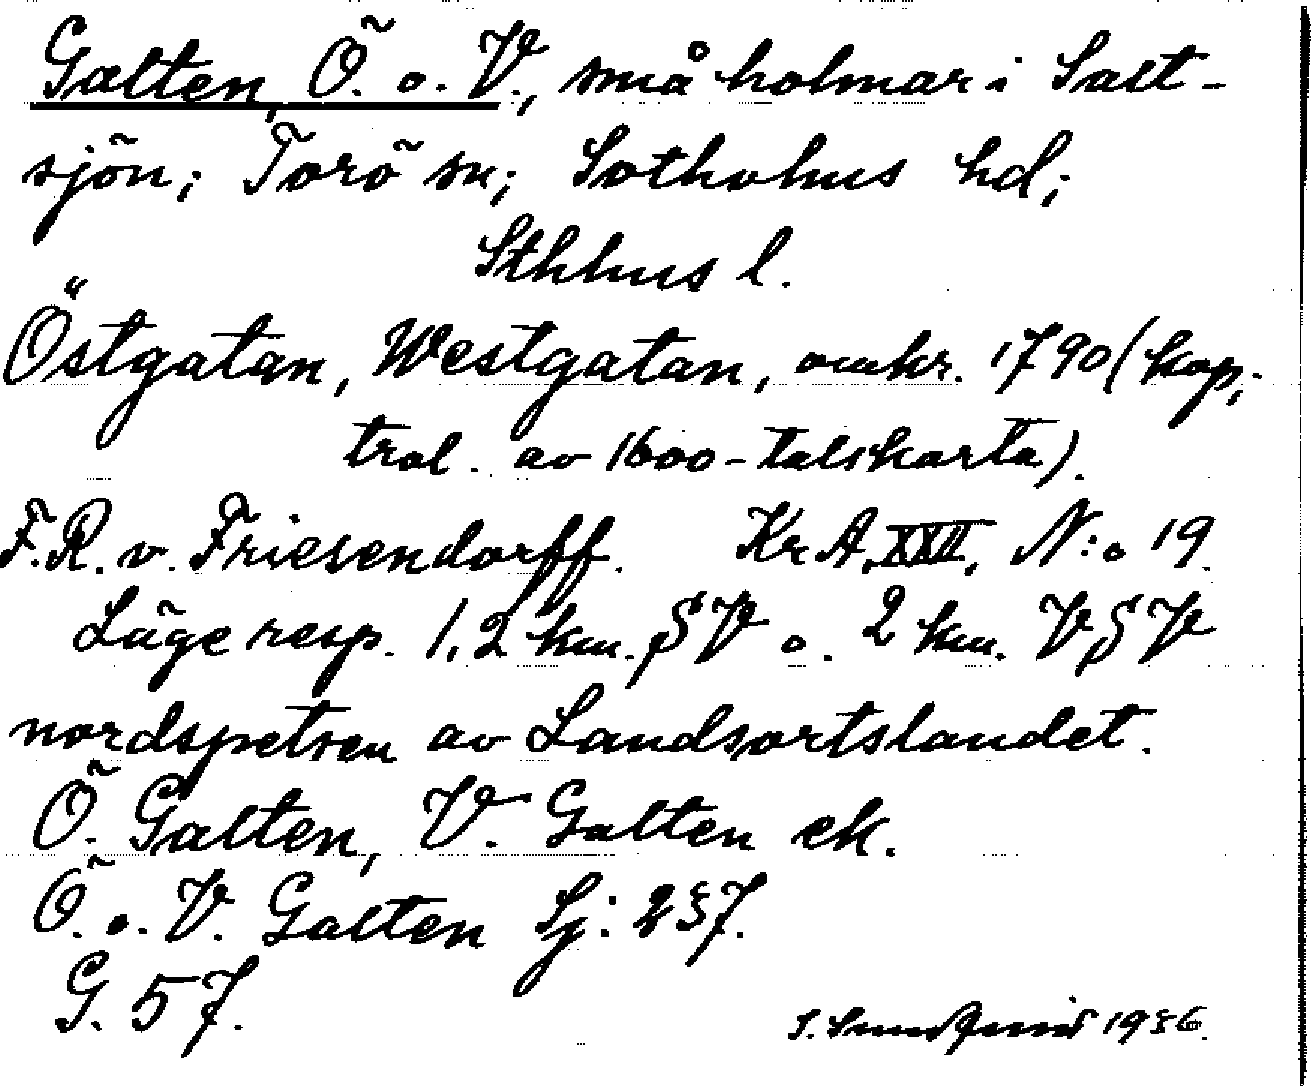 Galten, Ö. o. V., små holmar i Salt-
sjön; Torö sn; Sotholms hd;
Sthlms l.
Östgatan, Westgatan, omkr. 1790 (kop,
trol. av 1600-talskarta).
F.R. v. Friesendorff. Kr A. XXII, N:o 19.
Läge resp. 1,2 km. SV o. 2 km. VSV
nordspetsen av Landsortslandet.
Ö. Galten, V. Galten ek.
Ö. o. V. Galten Sj: 237.
G. 57.
1936.